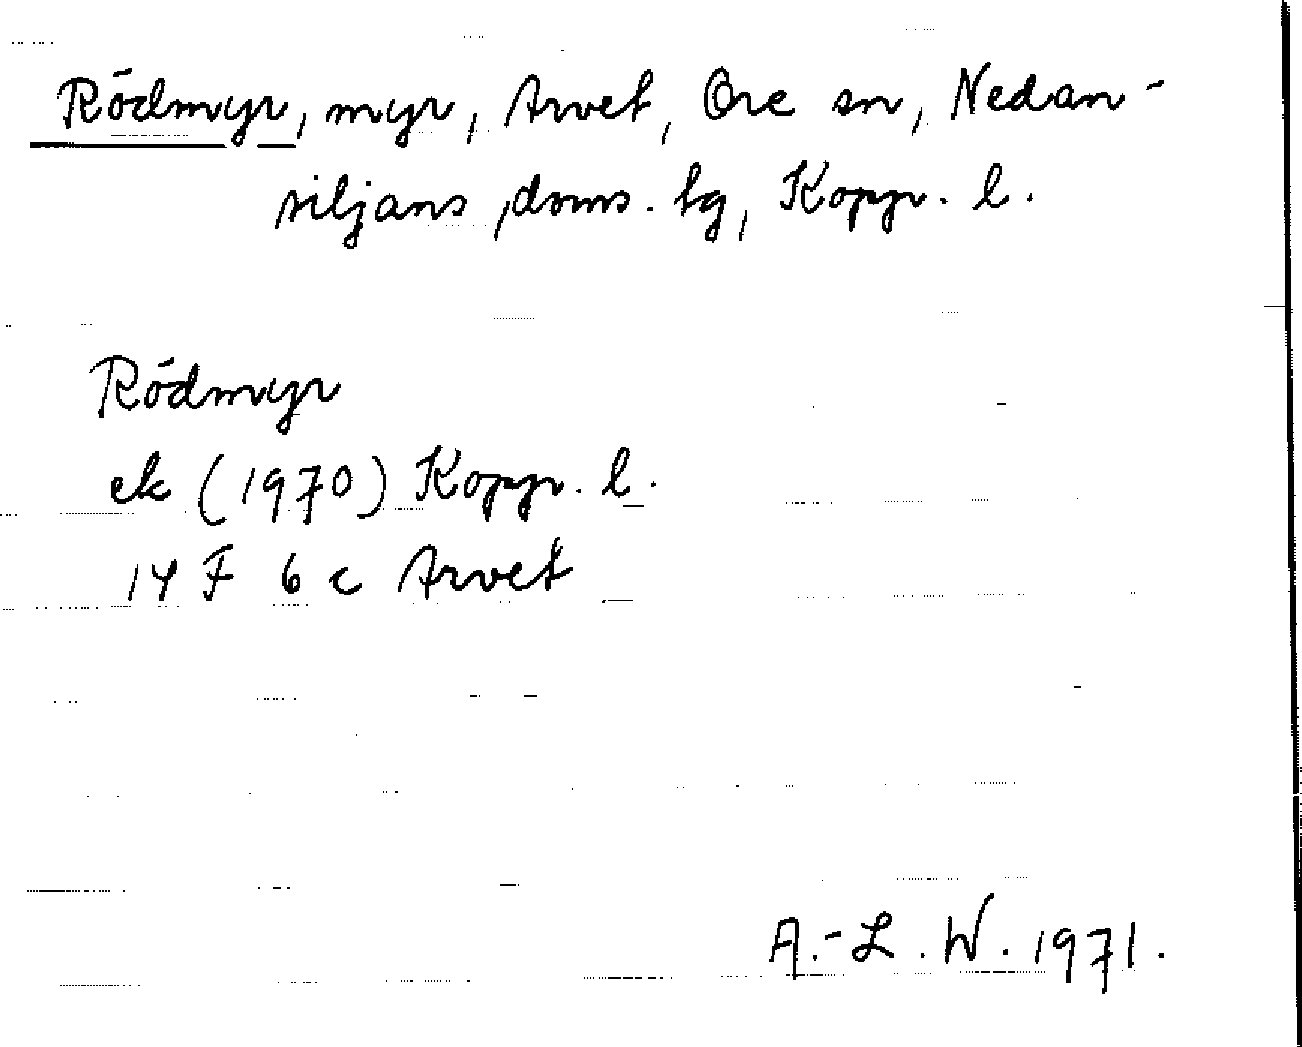 Rödmyr, myr, Arvet, Ore sn, Nedan-
siljans doms. tg, Kopp. l.
Rödmyr
ek (1970) Kopp. l.
14 F 6 c Arvet
A.-L. W. 1971.